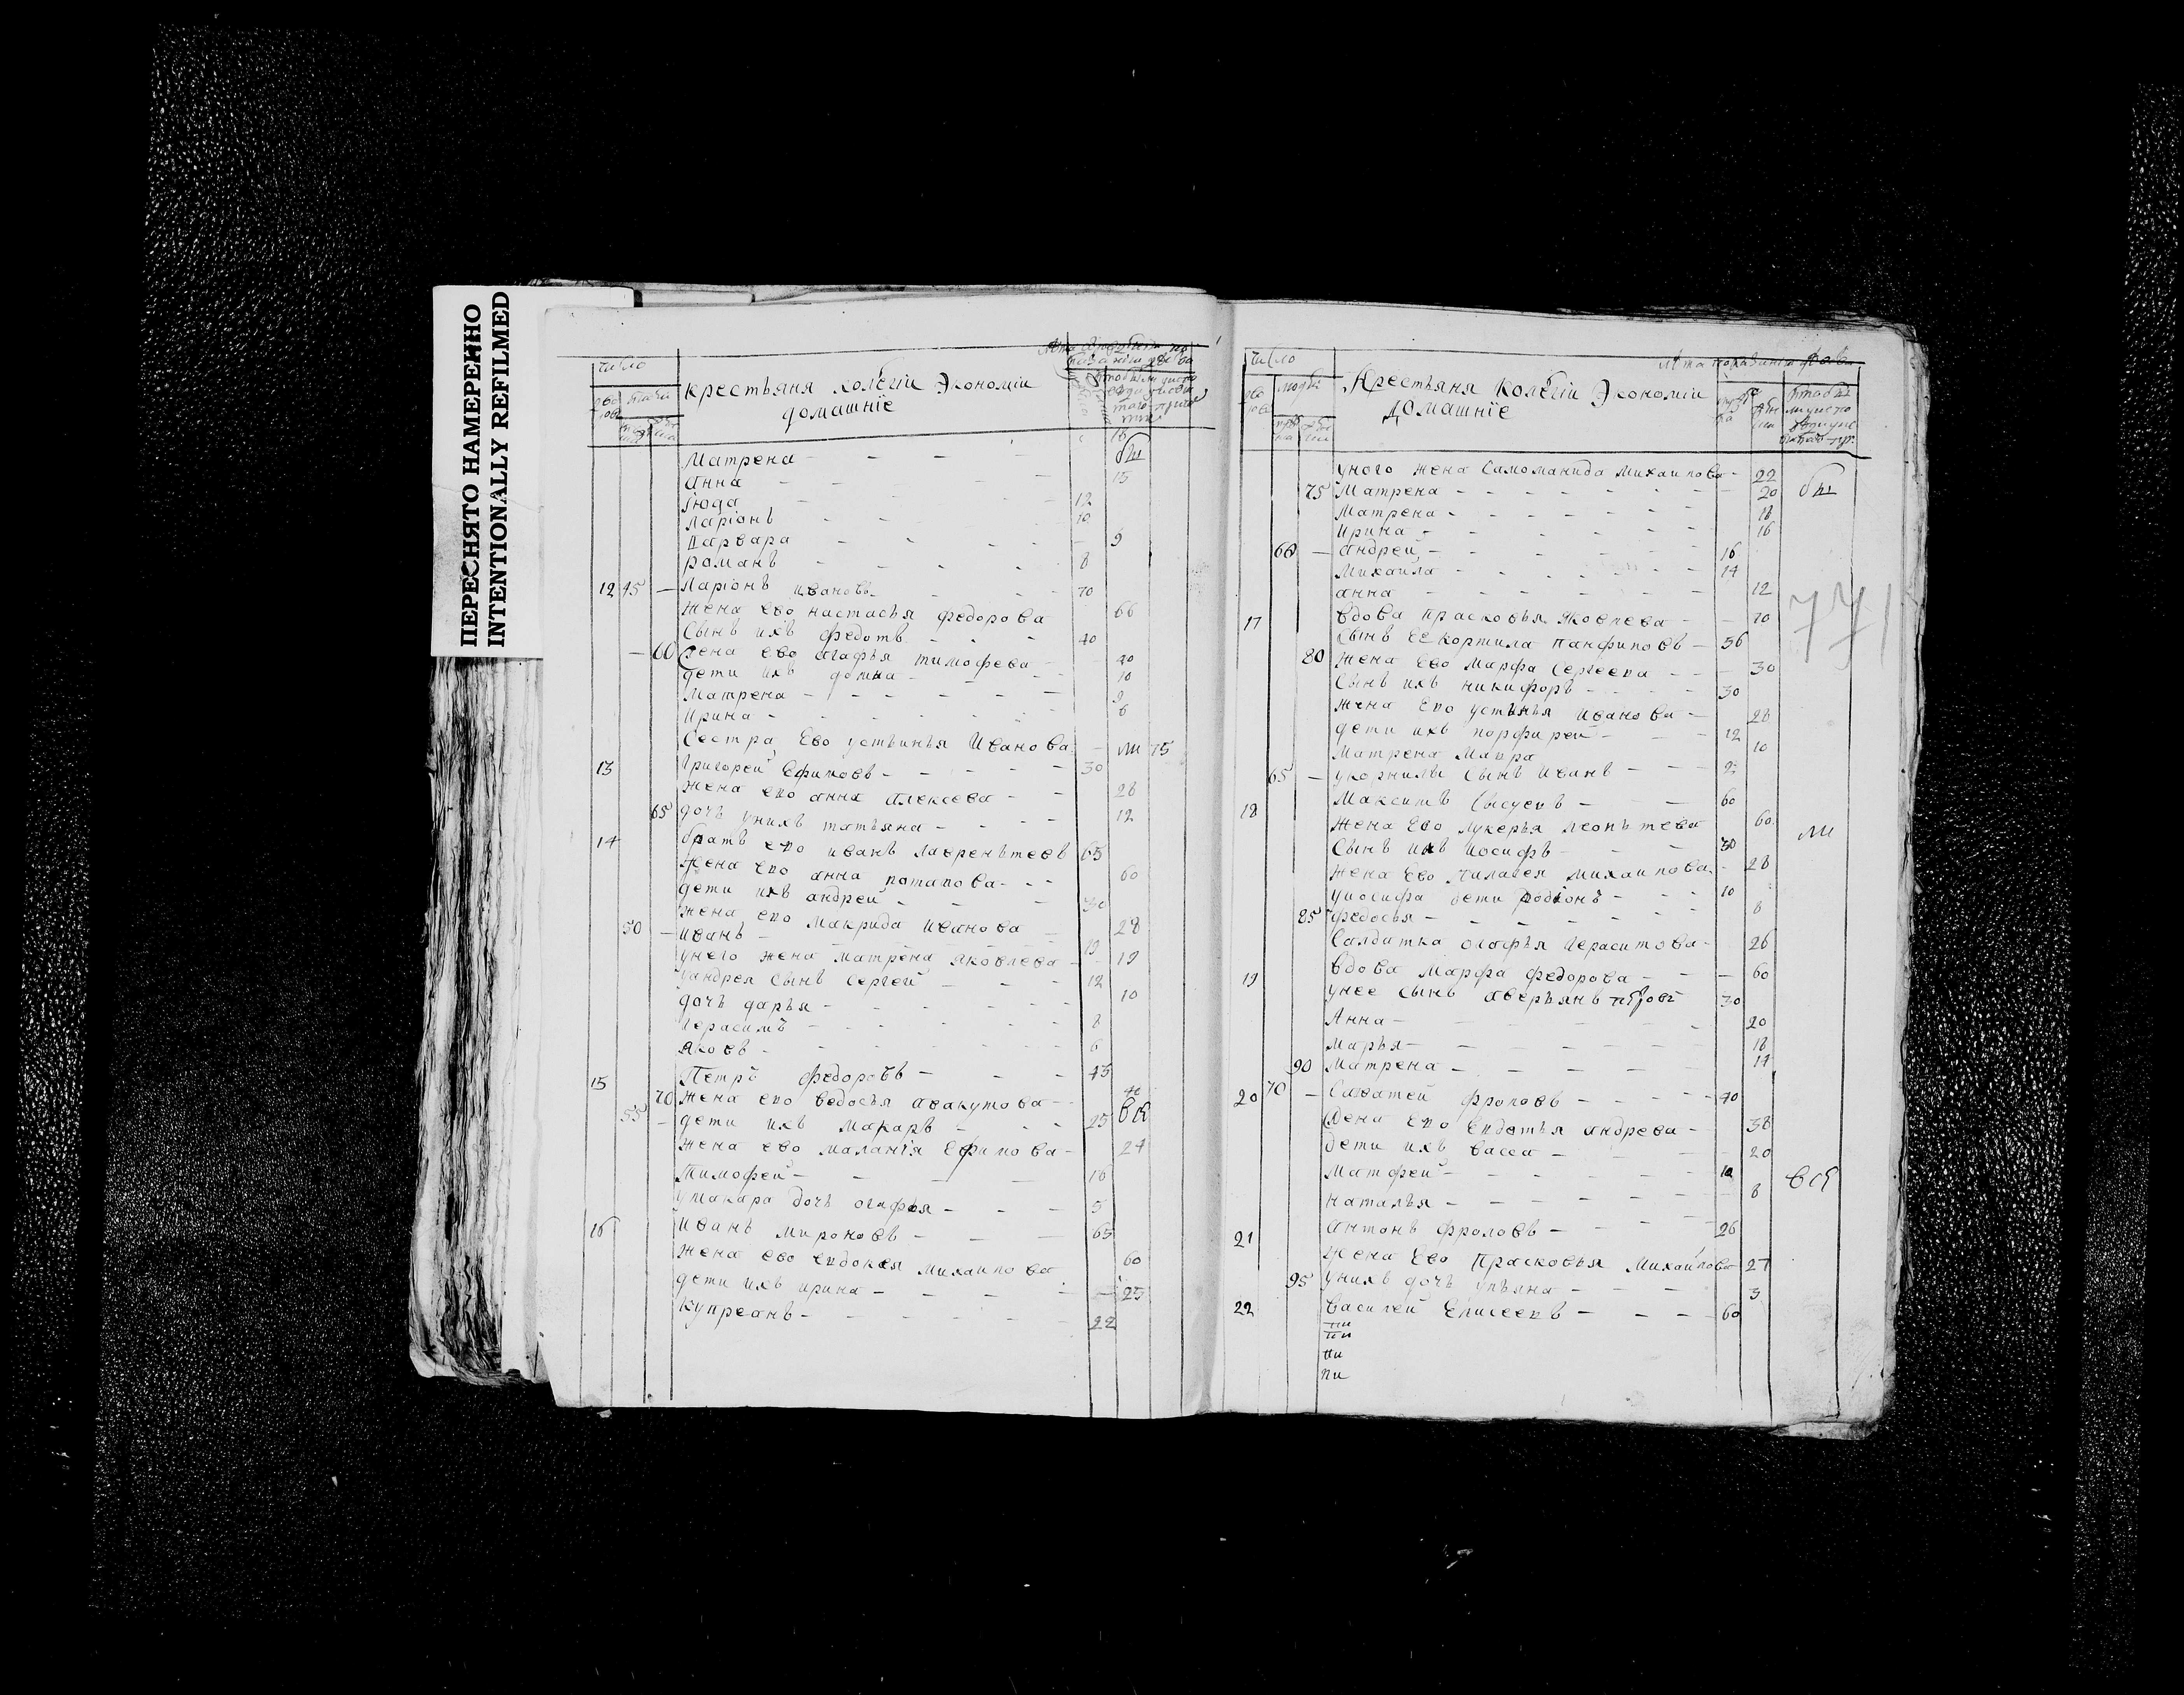 ПЕРЕСНЯТО НАМЕРЕННО
INTENTIONALLY REFILMED
число
крестьяня колегіи Экономіи
домашніе
16
Матрена
Анна 15
Іюда 12
Ларіонъ 10
Варвара 9
романъ 8
12 45 Ларіонъ ивановъ 70
жена ево настасья федорова 66
сынъ ихъ федотъ 40
60 жена ево агафья тимофева 40
дети ихъ домна 10
Матрена 9
Ирина 6
Сестра Ево устинья Иванова 75
13 Григорей Ефимовъ 30
жена ево анна Алексеева 28
65 дочь унихъ татьяна 12
14 братъ ево иванъ лаврентьевъ 65
жена ево анна потапова 60
дети ихъ андрей 30
жена ево макрида иванова 28
50 иванъ 19
унего жена матрена яковлева 19
уандрея сынъ сергей 12
дочь дарья 10
герасимъ 8
яковъ 6
15 Петръ федоровъ 45
70 жена ево ведосья авакумова 40
55 дети ихъ макаръ 25
жена ево маланія Ефимова 24
Тимофей 16
умакара дочь огафья 5
16 иванъ мироновъ 65
жена ево евдокея михаилова 60
дети ихъ ирина 25
купреанъ 22
число
людей
Крестьяня Колегіи Экономіи
домашніе
унего жена Саломанида михаилова 22
75 Матрена 20
Матрена 18
Ирина 16
60 андрей 16
михаила 14
анна 12
771
17 вдова прасковья Яковлева 70
сынъ ее кортила панфиловъ 36
80 жена Ево марфа сергеева 30
сынъ ихъ никифоръ 30
жена Ево устинья иванова 28
дети ихъ порфирей 12
матрена мавра 10
65 укорнилы сынъ иванъ
18 Максимъ 60
жена Ево лукерья 60
сынъ ихъ иосифъ 30
жена Ево михаилова 28
уиосифа дети родіонъ 10
85 федосья 8
салдатка огафья герасимова 26
19 вдова марфа федорова 60
унее сынъ аверьянъ петровъ 30
Анна 20
марья 18
90 Матрена 14
20 70 Саватей фроловъ 40
жена ево андрева 38
дети ихъ васса 20
матфей 10
наталья 8
21 антонъ фроловъ 26
жена Ево прасковья михаилова 27
95 унихъ дочь ульяна 3
22 василей Елисеевъ 60